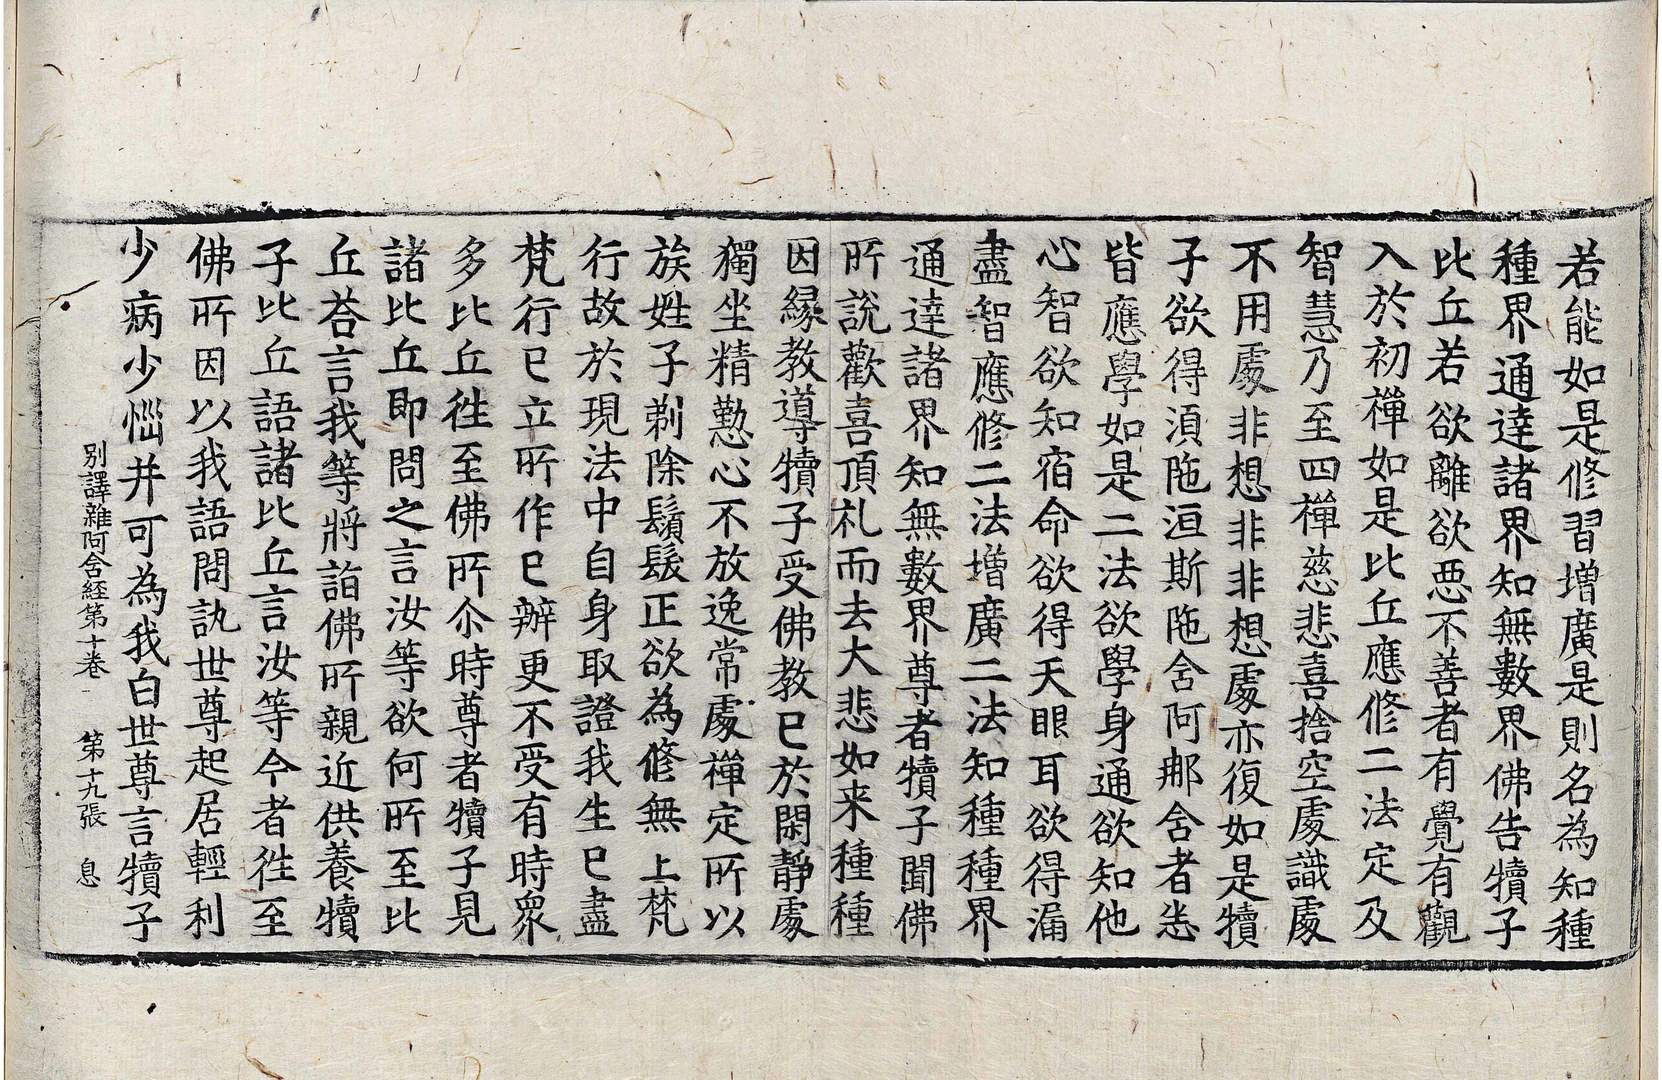 若能如是修習增廣是則名為知種
種界通達諸界知無數界佛告犢子
比丘若欲離欲惡不善者有覺有觀
入於初禪如是比丘應修二法定及
智慧乃至四禪慈悲喜捨空處識處
不用處非想非非想處亦復如是犢
子欲得湏陁洹斯陁含阿那含者悉
皆應學如是二法欲學身通欲知他
心智欲知宿命欲得天眼耳欲得漏
盡智應修二法增廣二法知種種界
通達諸界知無數界尊者犢子聞佛
所說歡喜頂礼而去大悲如来種種
因緣教導犢子受佛教已於閑靜處
獨坐精懃心不放逸常處禪定所以
族姓子剃除鬚髮正欲為修無上梵
行故於現法中自身取證我生已盡
梵行已立所作已辦更不受有時衆
多比丘徃至佛所尒時尊者犢子見
諸比丘即問之言汝等欲何所至比
丘荅言我等將詣佛所親近供養犢
子比丘語諸比丘言汝等今者徃至
佛所因以我語問訊世尊起居輕利
少病少惱并可為我白世尊言犢子
別譯雜阿含經第十卷 第十九張 息